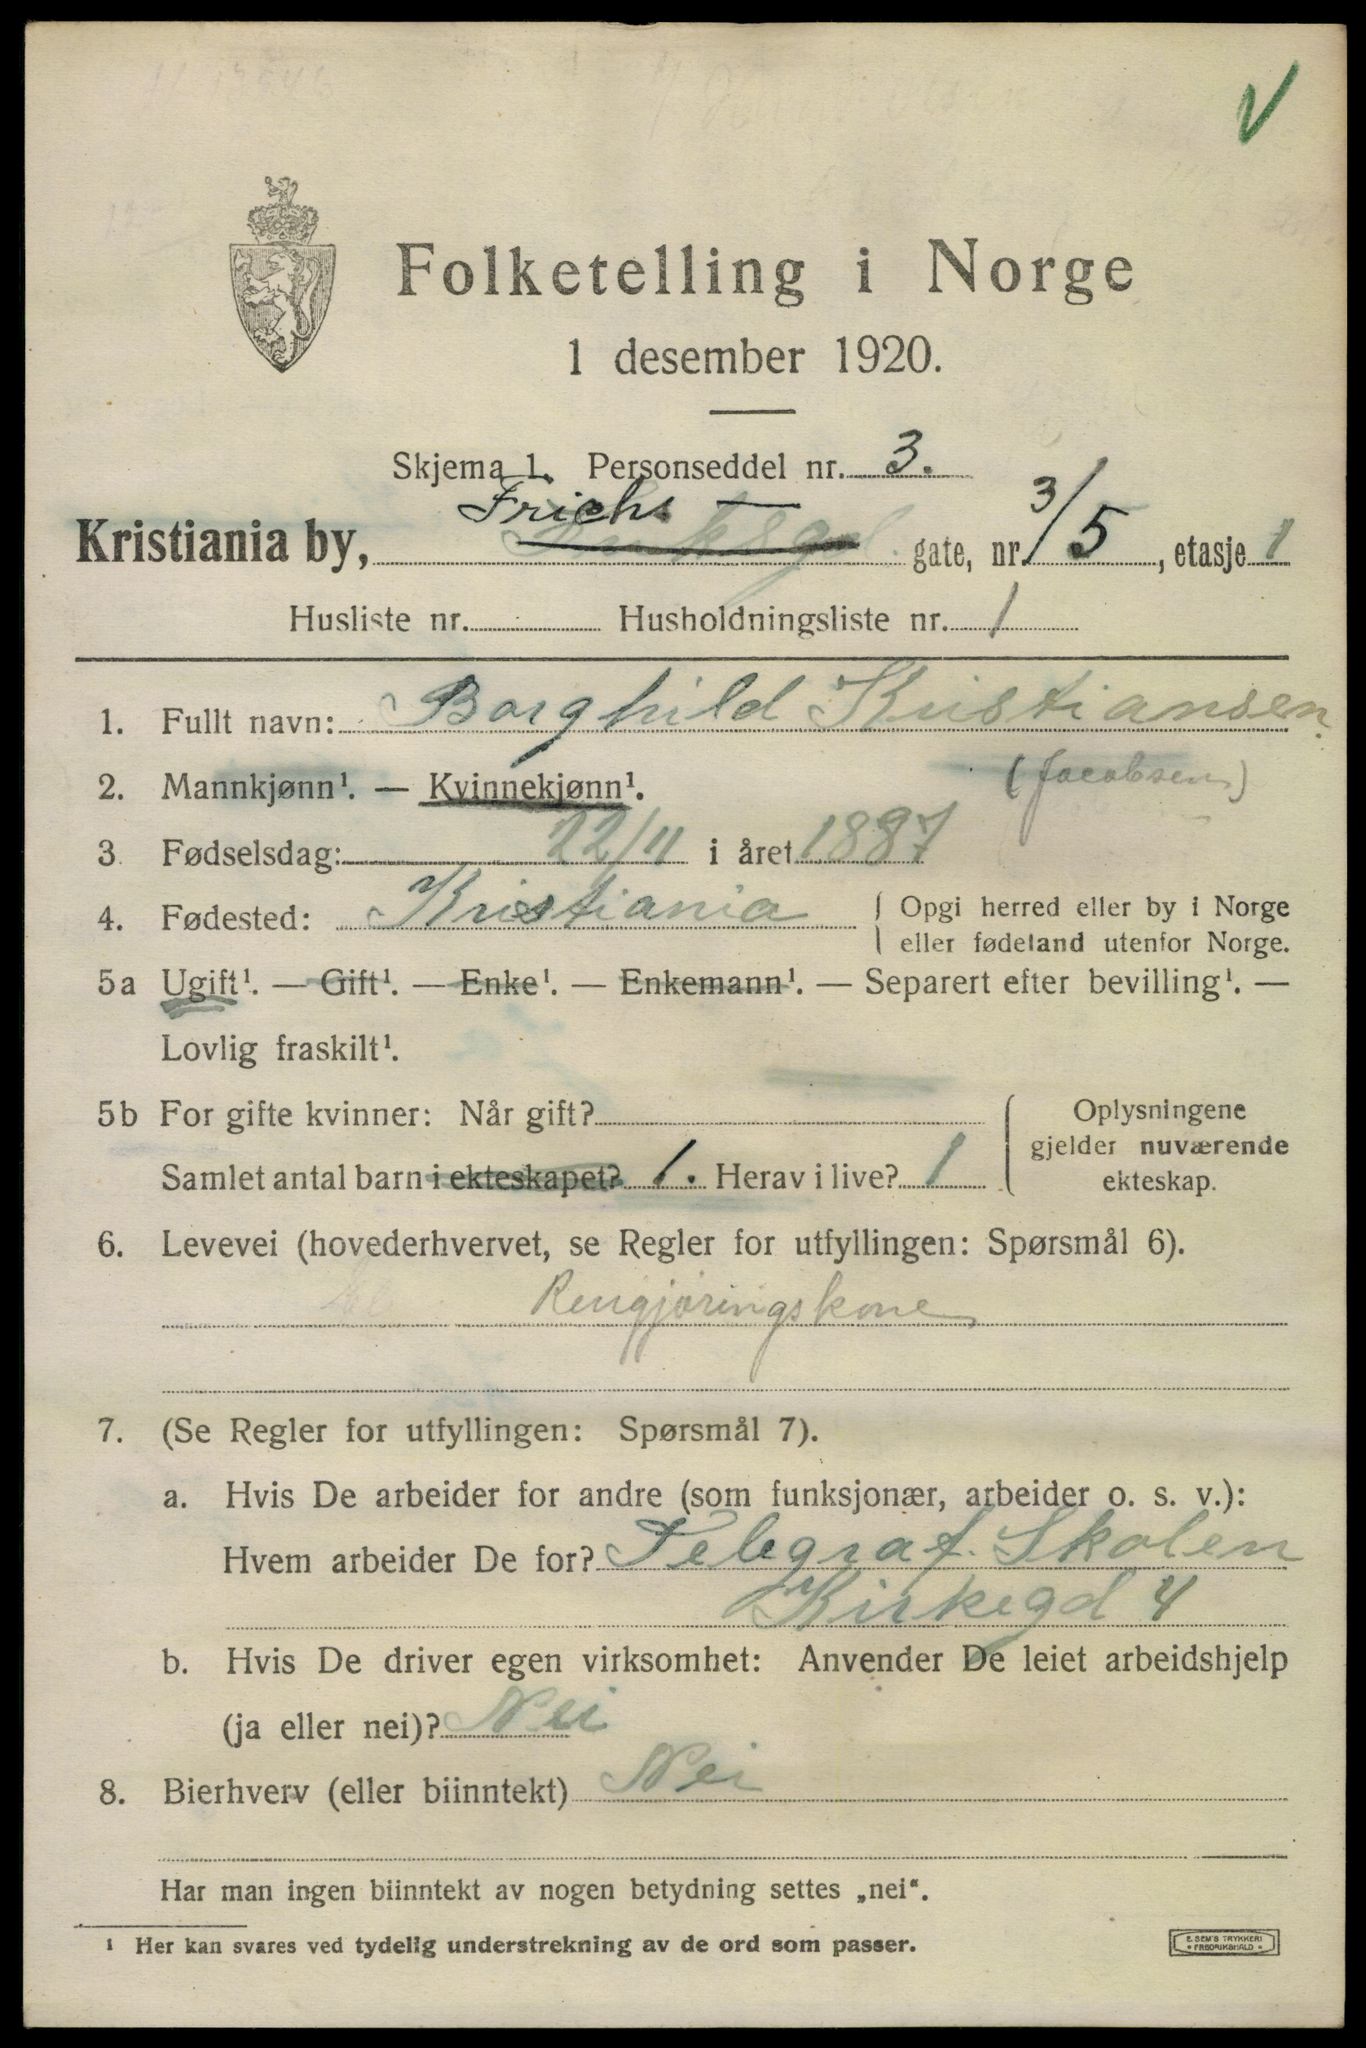 Folketelling i Norge
1 desember 1920.
Skjema 1. Personseddel nr. 3.
Kristiania by, Frichs gate, nr. 3/5, etasje 1
Husliste nr. Husholdningsliste nr. 1
1. Fullt navn: Borghild Kristiansen
(Jacobsen)
2. Mannkjønn¹. — Kvinnekjønn¹.
3 Fødselsdag: 22/11 i året 1887
4. Fødested: Kristiania { Opgi herred eller by i Norge
eller fødeland utenfor Norge.
5a Ugift¹. — Gift¹. — Enke¹. — Enkemann¹. — Separert efter bevilling¹. —
Lovlig fraskilt¹.
5b For gifte kvinner: Når gift? { Oplysningene
gjelder nuværende
ekteskap.
Samlet antal barn i ekteskapet? 1. Herav i live? 1
6. Levevei (hovederhvervet, se Regler for utfyllingen: Spørsmål 6).
Rengjøringskone
7. (Se Regler for utfyllingen: Spørsmål 7).
a. Hvis De arbeider for andre (som funksjonær, arbeider o. s. v.):
Hvem arbeider De for? Telegraf. Skolen
Kirkegd 4
b. Hvis De driver egen virksomhet: Anvender De leiet arbeidshjelp
(ja eller nei)? Nei
8. Bierhverv (eller biinntekt) Nei
Har man ingen biinntekt av nogen betydning settes „nei“.
¹ Her kan svares ved tydelig understrekning av de ord som passer.
E SEM'S TRYKKERI
* FREDRIKSHALD *